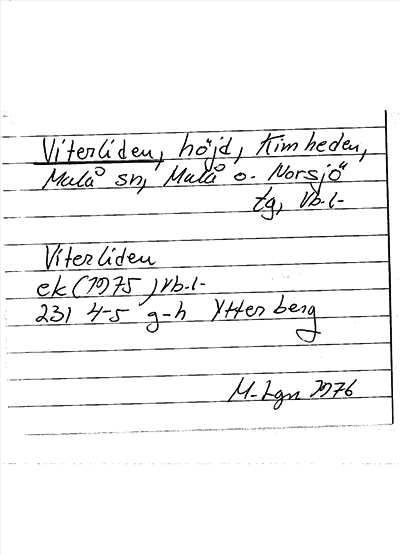 Viterliden, höjd, Kimheden,
Malå sn, Malå o. Norsjö
tg, Vb.l-
Viterliden
ek (1975) Vb.l-
231 4-5 g-h Ytterberg
M-Lgn 1976